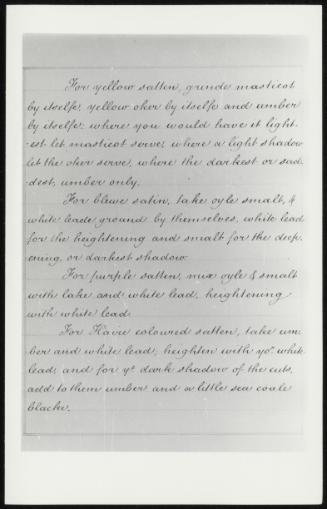 For yellow satten, grinde masticot
by itselfe, yellow oker by itselfe and umber
by itselfe: where you would have it light-
-est let masticot serve; where a light shadow
let the oker serve, where the darkest or sad-
dest, umber only.
For blewe satin, take oyle smalt, &
white leade ground by themselves, white lead
for the heightening and smalt for the deep-
ening, or darkest shadow.
For purple satten, mix oyle & smalt
with lake and white lead, heightening
with white lead.
For Haire coloured satten, take um-
ber and white lead; heighten with yoʳ white
lead; and for yᵉ dark shadow of the cuts,
add to them umber and a little sea coale
blacke.